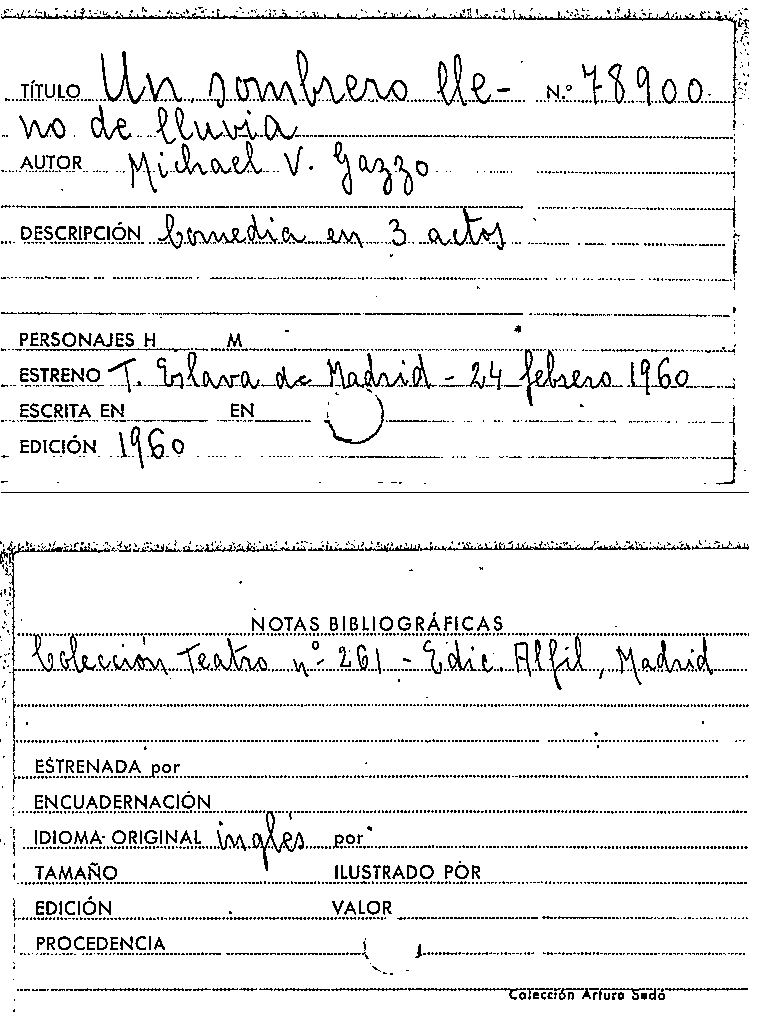 TÍTULO Un sombrero lle- N.º 78900
no de lluvia
AUTOR Michael V. Gazzo
DESCRIPCIÓN Comedia en 3 actos
PERSONAJES H M
ESTRENO T. Eslava de Madrid - 24 febrero 1960
ESCRITA EN EN
EDICIÓN 1960
NOTAS BIBLIOGRÁFICAS
Colección Teatro nº 261 - Edic. Alfil, Madrid
ESTRENADA por
ENCUADERNACIÓN
IDIOMA ORIGINAL inglés por
TAMAÑO ILUSTRADO POR
EDICIÓN VALOR
PROCEDENCIA
Colección Arturo Sedó